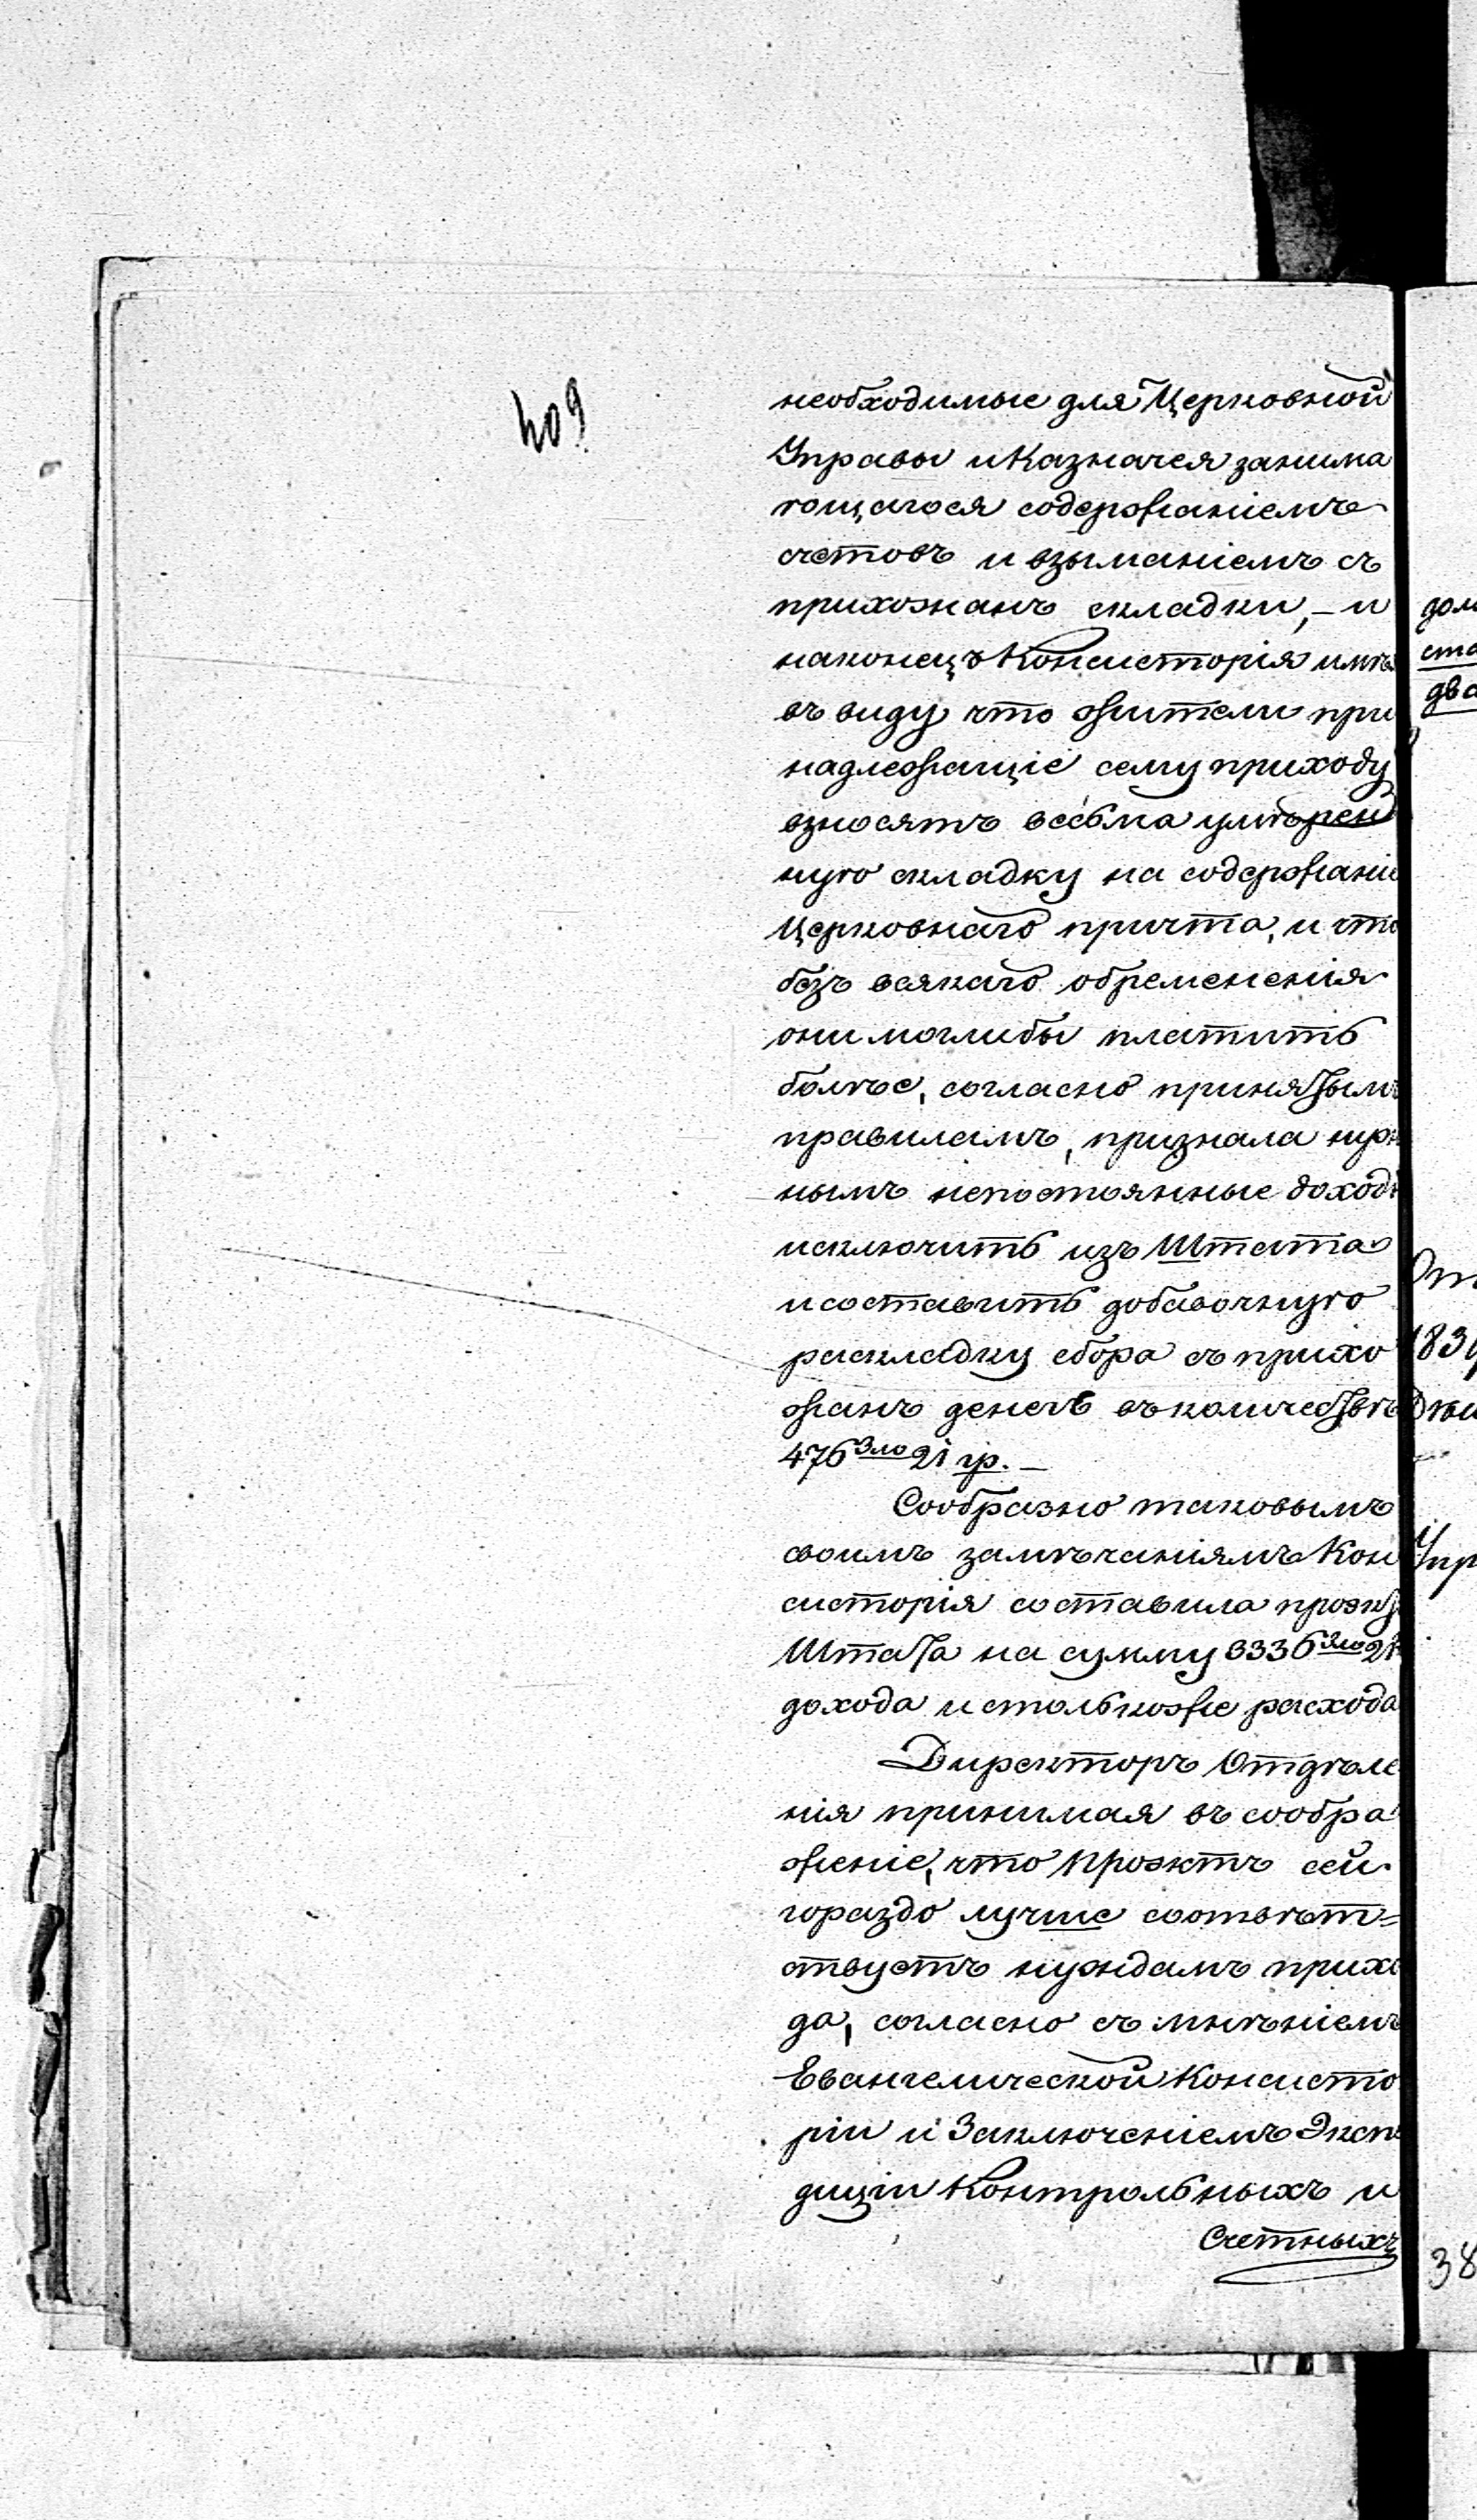 409
необходимые для Церковной
Управы и Казначея занима
ющагося содержаніемъ
счетовъ и взыманіемъ съ
прихожанъ складки, – и
наконецъ Консисторія имѣя
въ виду что жители при
надлежащіе сему приходу
взносятъ весьма умѣрен
ную складку на содержаніе
Церковнаго причта, и что
безъ всякаго обремененія
они моглибы платить
болѣе, согласно принятымъ
правиламъ, признала нуж
нымъ непостоянные доходы
исключить изъ Штата
и составить добавочную
раскладку сбора съ прихо
жанъ денегъ въ количествѣ
476 Зло 21 гр. –
Сообразно таковымъ
своимъ замѣчаніямъ Кон
систорія составила проэкт
Штата на сумму 3336 Зло 21
дохода и столькоже расхода
Директоръ Отдѣле
нія принимая въ сообра
женіе, что Проэктъ сей
гораздо лучше соотвѣт=
ствуетъ нуждамъ прихо
да, согласно съ мнѣніемъ
Евангелической Консисто
ріи и Заключеніемъ Экспе
диціи Контрольныхъ и
Счетныхъ
дом
ста
два
От
183
Упр
38